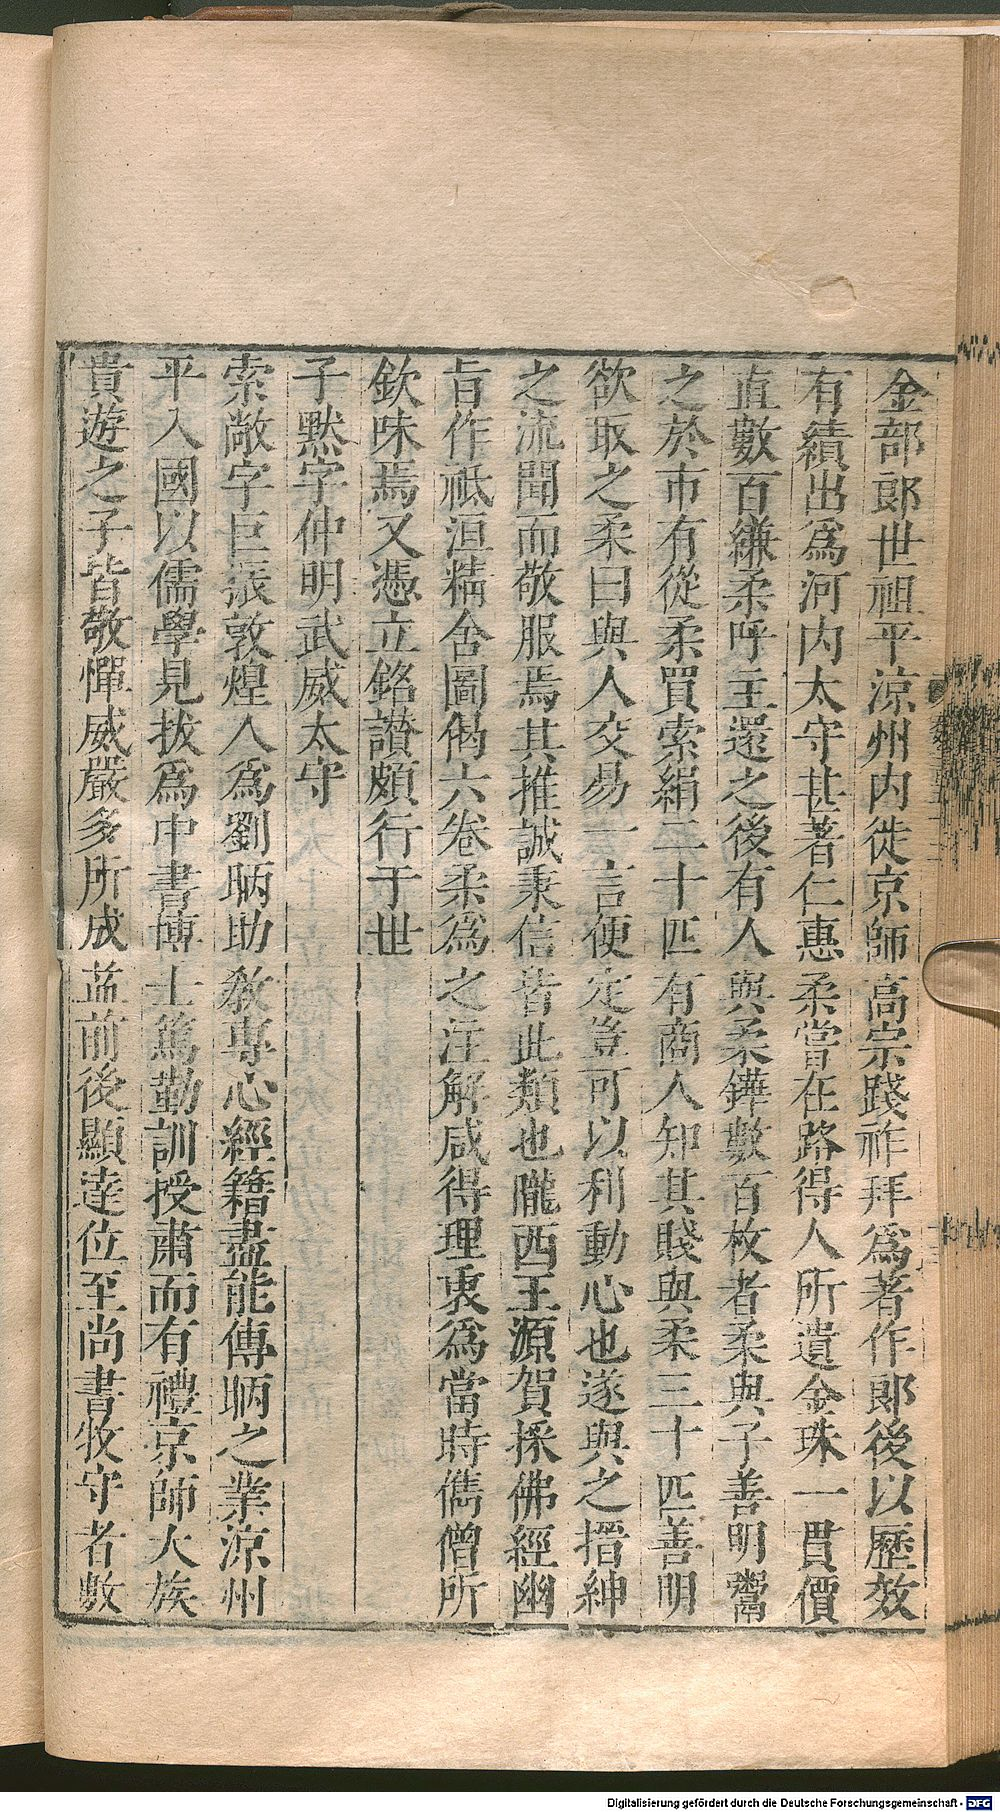 金部郎世祖平涼州内徙京師高宗踐祚拜爲著作郎後以歷效
有績出爲河内太守甚著仁惠柔嘗在路得人所遺金珠一貫價
直數百縑柔呼主還之後有人與柔鏵數百枚者柔與子善明鬻
之於市有從柔買索絹二十匹有商人知其賤與柔三十匹善明
欲取之柔曰與人交易一言便定豈可以利動心也遂與之搢紳
之流聞而敬服焉其推誠秉信皆此類也隴西王源賀採佛經幽
旨作祗洹精舍圖偈六卷柔爲之注解咸得理衷爲當時儁僧所
欽味焉又憑立銘讚頗行于世
子默字仲明武威太守
索敞字巨振敦煌人爲劉昞助敎專心經籍盡能傳昞之業涼州
平入國以儒學見拔爲中書博士篤勤訓授肅而有禮京師大族
貴遊之子皆敬憚威嚴多所成益前後顯達位至尚書牧守者數
Digitalisierung gefördert durch die Deutsche Forschungsgemeinschaft - DFG